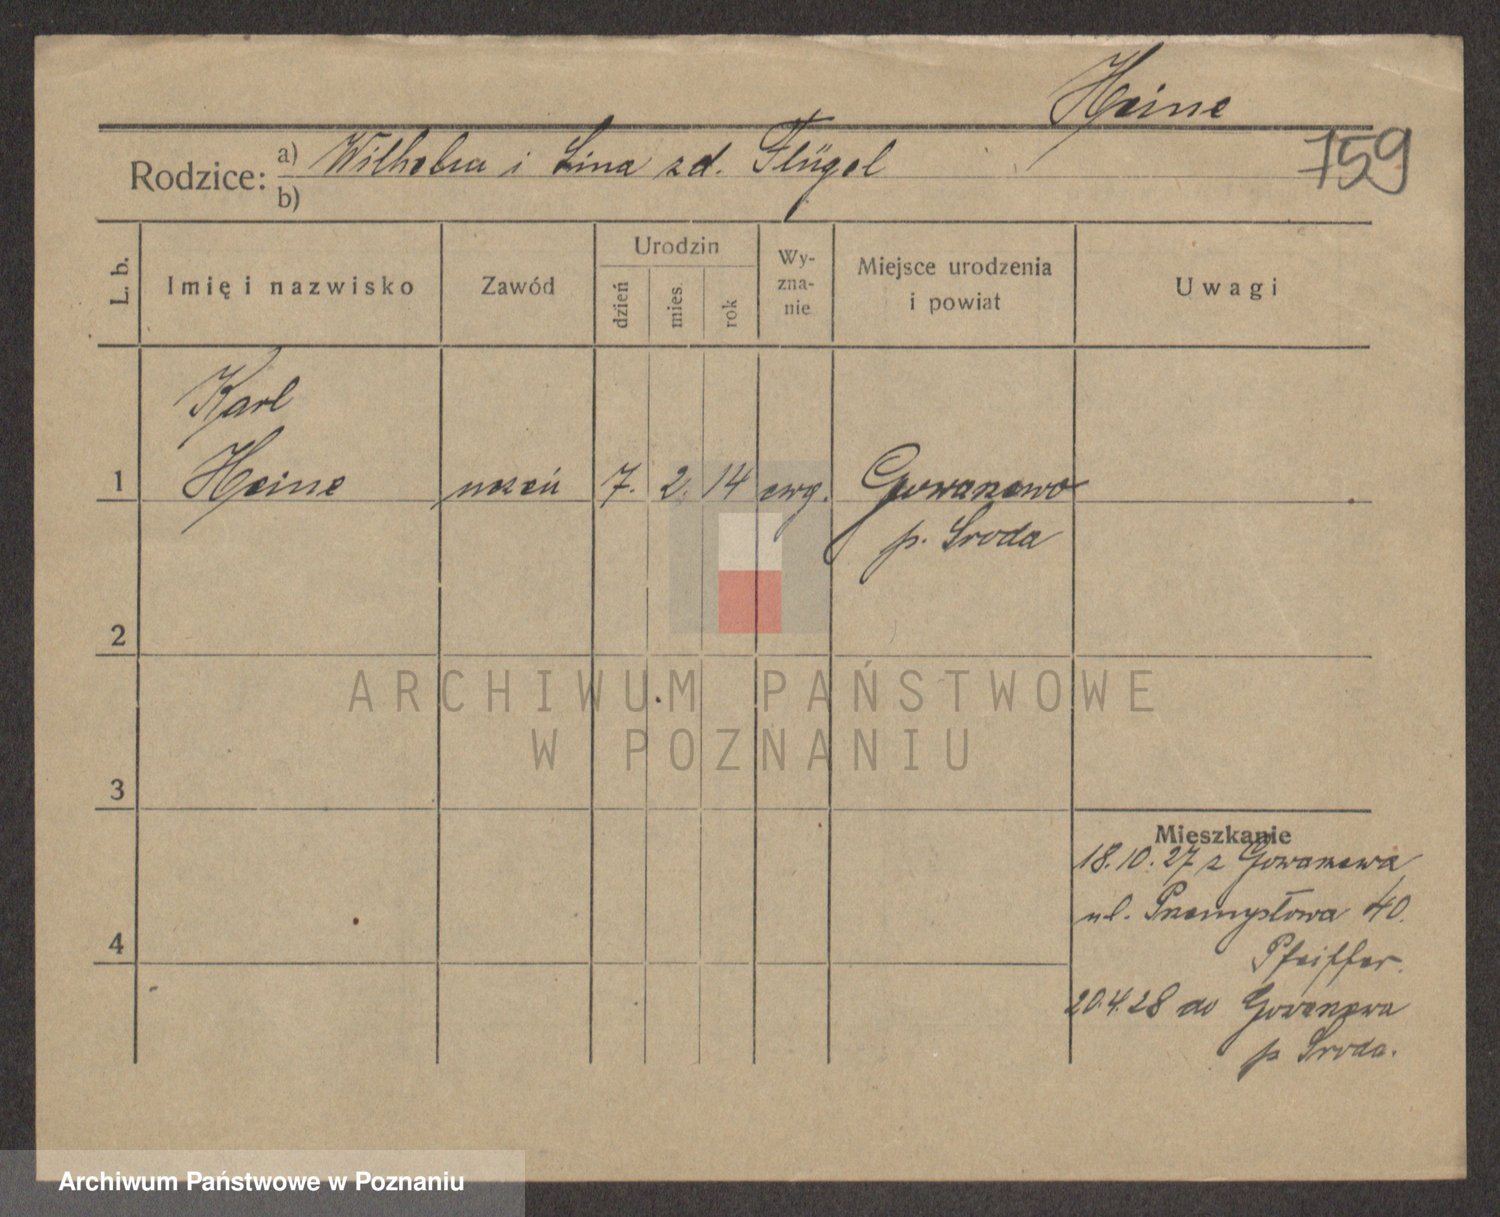 Heine
759
Rodzice: a) Wilhelm i Lina zd. Flügel
b)
L. b. Imię i nazwisko Zawód Urodzin dzień mies. rok Wy-zna-nie Miejsce urodzenia i powiat Uwagi
Karl
1 Heine uczeń 7. 2. 14 ewg. Gowarzewo
p. Środa
2
ARCHIWUM PAŃSTWOWE
W POZNANIU
3
Mieszkanie
18.10.27 z Gowarzewa
ul. Przemysłowa 40.
4
Pfeiffer.
20.4.28 do Gowarzewa
p Środa.
Archiwum Państwowe w Poznaniu